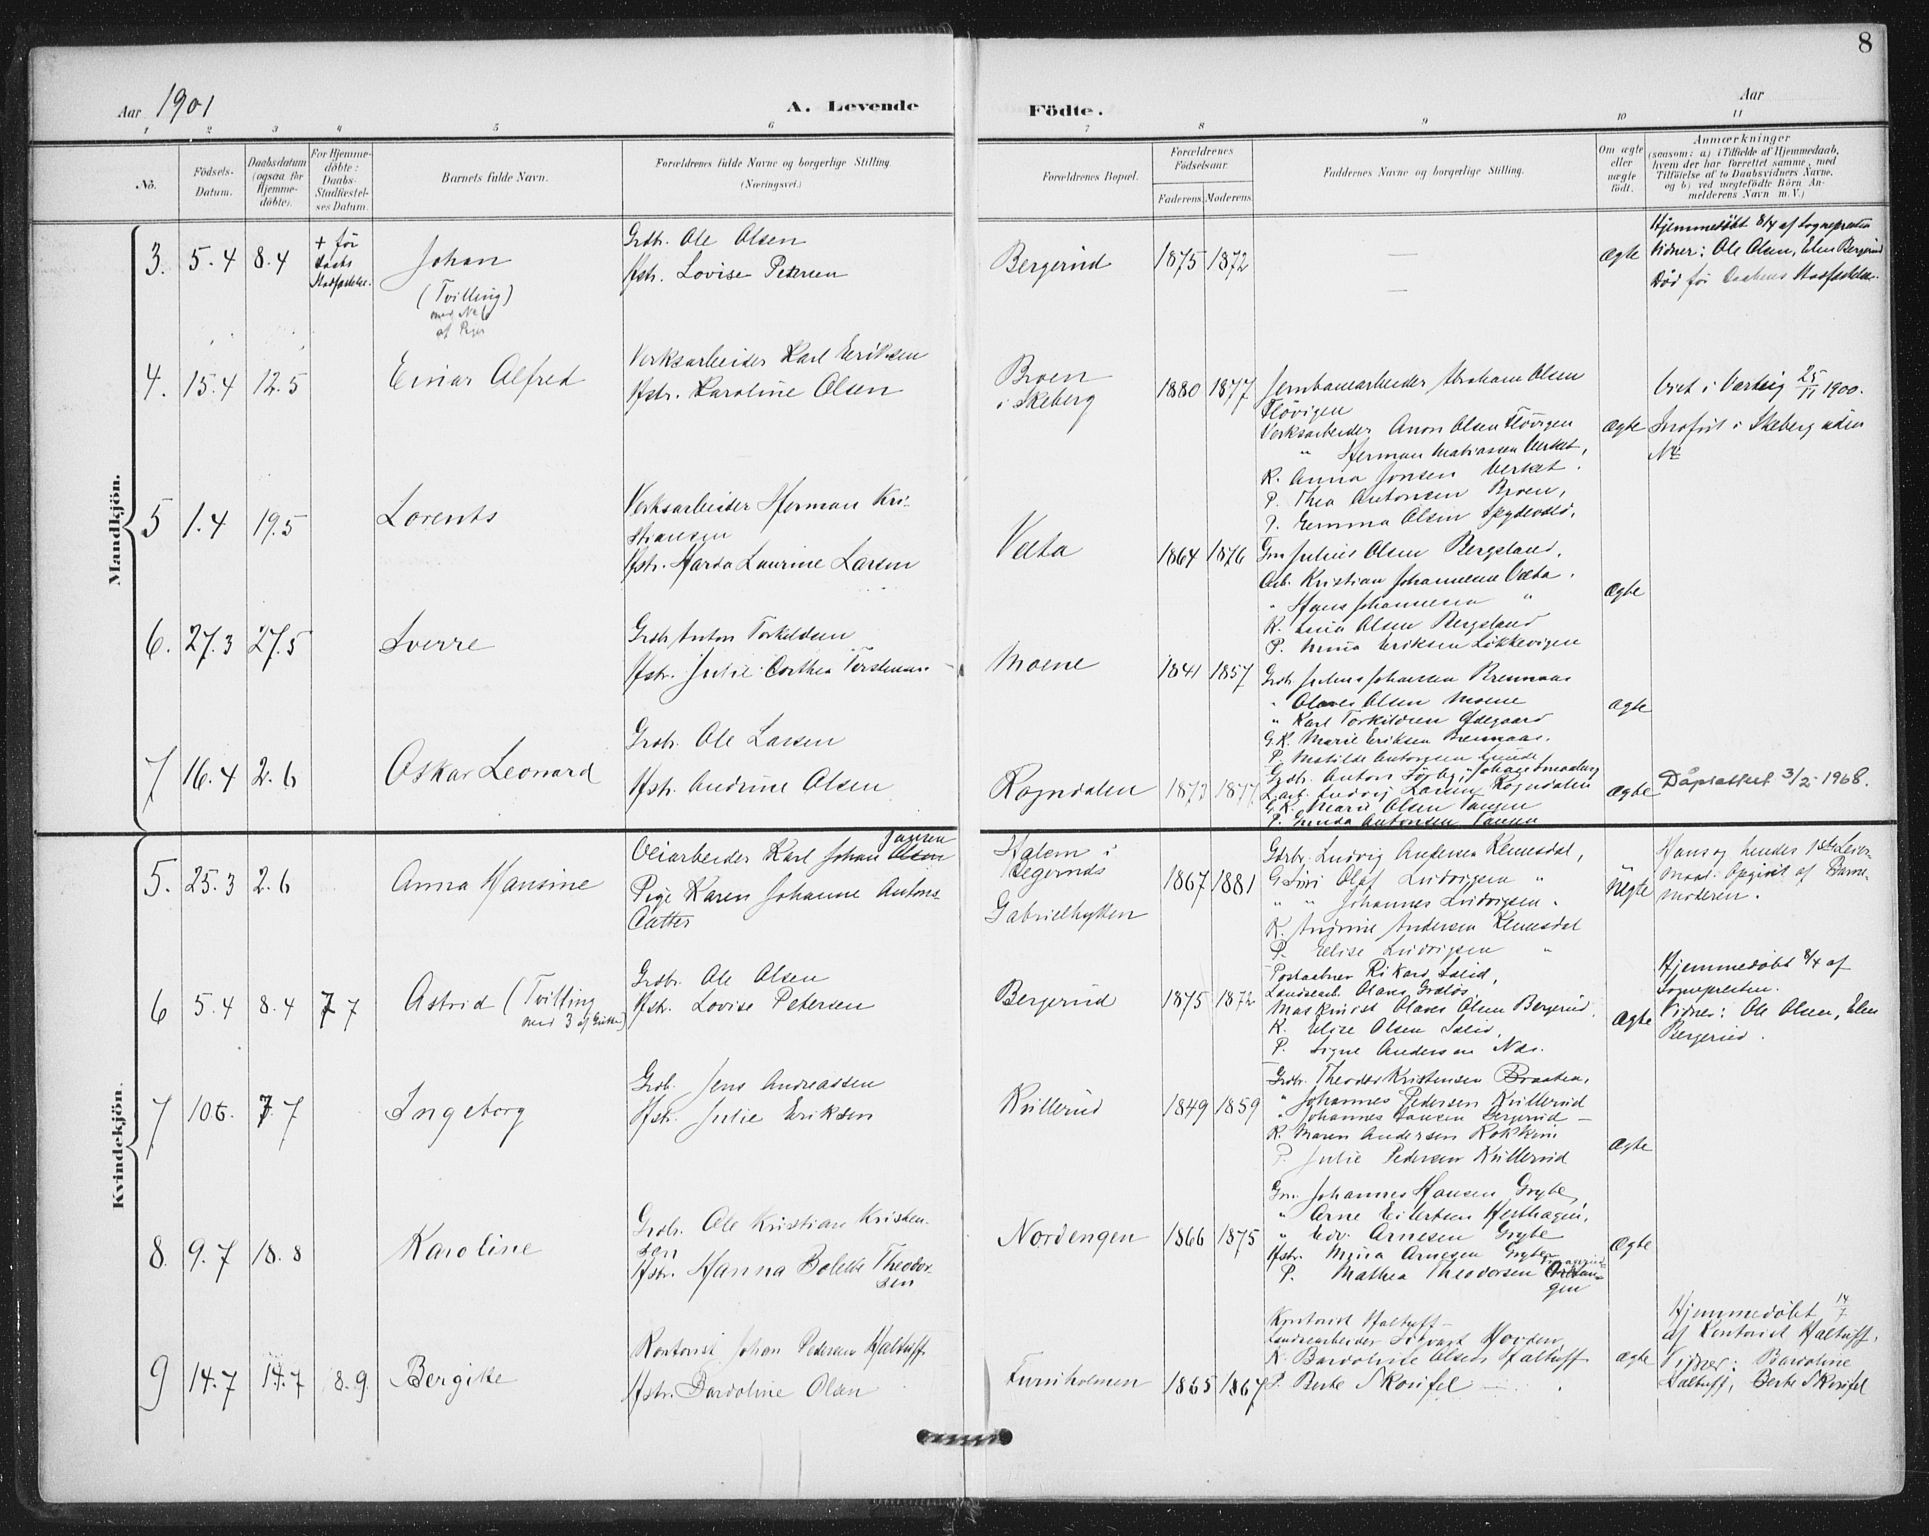 8
Aar 1901
A. Levende
Födte.
Aar
1 2 3 4 5 6 7 8 9 10 11
No.
Födsels-
Datum.
Daabsdatum
(ogsaa for
Hjemme-
döbte).
For Hjemme-
döbte:
Daabs-
Stadfæstel-
ses Datum.
Barnets fulde Navn.
Forældrenes fulde Navne og borgerlige Stilling.
(Næringsvei.)
Forældrenes Bopæl.
Forældrenes
Födselsaar.
Faderens
Moderens
Faddernes Navne og borgerlige Stilling.
Om ægte
eller
uægte
födt.
Anmærkninger
(saasom: a) i Tilfælde af Hjemmedaab,
hvem der har forrettet samme, med
Tilföielse af to Daabsvidners Navne,
og b) ved uegtefödte Börn An-
melderens Navn m. V.)
Mandkjön.
3. 5.4 8.4
+ før
Daabs
Stadfæstelse.
Johan
(Tvilling)
med No 6
af Piger
Grdbr. Ole Olsen
Hstr. Lovise Petersen
Bergerud 1875 1872
—
—
ægte
Hjemmedøbt 8/4 af Sognepresten
Vidner: Ole Olsen, Elen Bergerud
Død før Daabens Stadfæstelse.
4. 15.4 12.5
Einar Alfred
Verksarbeider Karl Eriksen
Hstr. Karoline Olsen
Broen
i Skeberg
1880 1877
Jernbanearbeider Abraham Olsen
Fløvigen
Verksarbeider Anon Olsen Fløvigen
" Herman Mathiassen Verket,
K. Anna Jonsen Verket.
P. Thea Antonsen Broen,
P. Emma Olsen
ægte
Viet i Varteig 25/11 1900.
Indført i Skeberg uden
No
5 1.4 19.5
Lorents
Verksarbeider Herman Kri-
stiansen
Hstr. Laurine Larsen
1864 1876
Grn Julius Olsen Bergsland,
Arb. Kristian Johannesen
" Hans Johannesen "
K. Lina Olsen Bergsland
P. Mina Eriksen Løkkevigen
ægte
6. 27.3 27.5
Sverre
Grdbr Anton Torkildsen
Hstr. Julie Dorthea Torstensen
Moene
1841 1857
Grdb Julius Johansen Brennaas
" Olaves Olsen Moene
" Karl Torkildsen Ødegaard
G.K. Marie Eriksen Brennaas.
P. Matilde Antonsen
ægte
7 16.4 2.6
Oskar Leonard
Grdbr. Ole Larsen
Hstr. Andrine Olsen
Rogndalen
1873 1877
Grdbr. Anton
L.arb. Ludvig Larsen Rogndalen
G.K. Marie Olsen Tangen
P. Antonsen Tangen
ægte
Dåpsattest 3/2-1968.
Kvindekjön.
5. 25.3 2.6
Anna Hansine
Veiarbeider Karl Johan Olsen
Jansen
Pige Karen Johanne Antons-
datter
i
Degernds
Gabrielhytten
1867 1881
Gdrbr. Ludvig Andersen Kennesdal,
Olaf Ludvigsen "
" " Johannes Ludvigsen "
K. Andersen Kennesdal
P. Elise Ludvigsen "
Uegte
Hans og hendes 1ste Leier-
maal. Opgivet af Barne-
moderen.
6 5.4 8.4 7 7
Astrid (Tvilling
med 3 af Gutter)
Grdbr. Ole Olsen
Hstr. Lovise Petersen
Bergerud 1875 1872
Rikard
Landarb. Olaus
Maskinist Olaves Olsen Bergerud,
K. Elise Olsen
P. Signe Andersen Næs.
ægte
Hjemmedøbt 8/4 af
Sognepresten.
Vidner: Ole Olsen, Elen
Bergerud.
7 10 6. 7 7
Ingeborg
Grdb. Jens Andreassen
Hstr. Julie Eriksen
Kullerud 1849 1859
Grdbr. Theodor Kristensen Braaten,
" Johannes Pedersen Kullerud
" Johannes Hansen Bergerud —
K. Maren Andersen Kokkim
P. Julie Pedersen Kullerud
ægte
8. 9.7 18.8
Karoline
Grdbr. Ole Kristian Kristen-
sen
Hstr. Hanna Bolette Theodor-
sen
Nordengen 1866 1875
Grn. Johannes Hansen Grybe,
" Arne Eilertsen Hesthagen,
" Edv. Arnesen Grybe
Hstr. Mina Arnesen Grybe
P. Mathea Theodorsen
ægte
9 14.7 14.7 8.9.
Bergitte
Kontorist Johan Pedersen Haltuff
Hstr. Bardoline Olsen
Furuholmen 1865 1867
Kontorist Haltuff —
Landsearbeider Sigvart Hovden,
K. Bardoline Olsen Haltuff
P. Berte Skorifel
ægte
Hjemmedøbt 14/7
af Kontorist Haltuff.
Vidner: Bardoline
Haltuff, Berte Skorifel